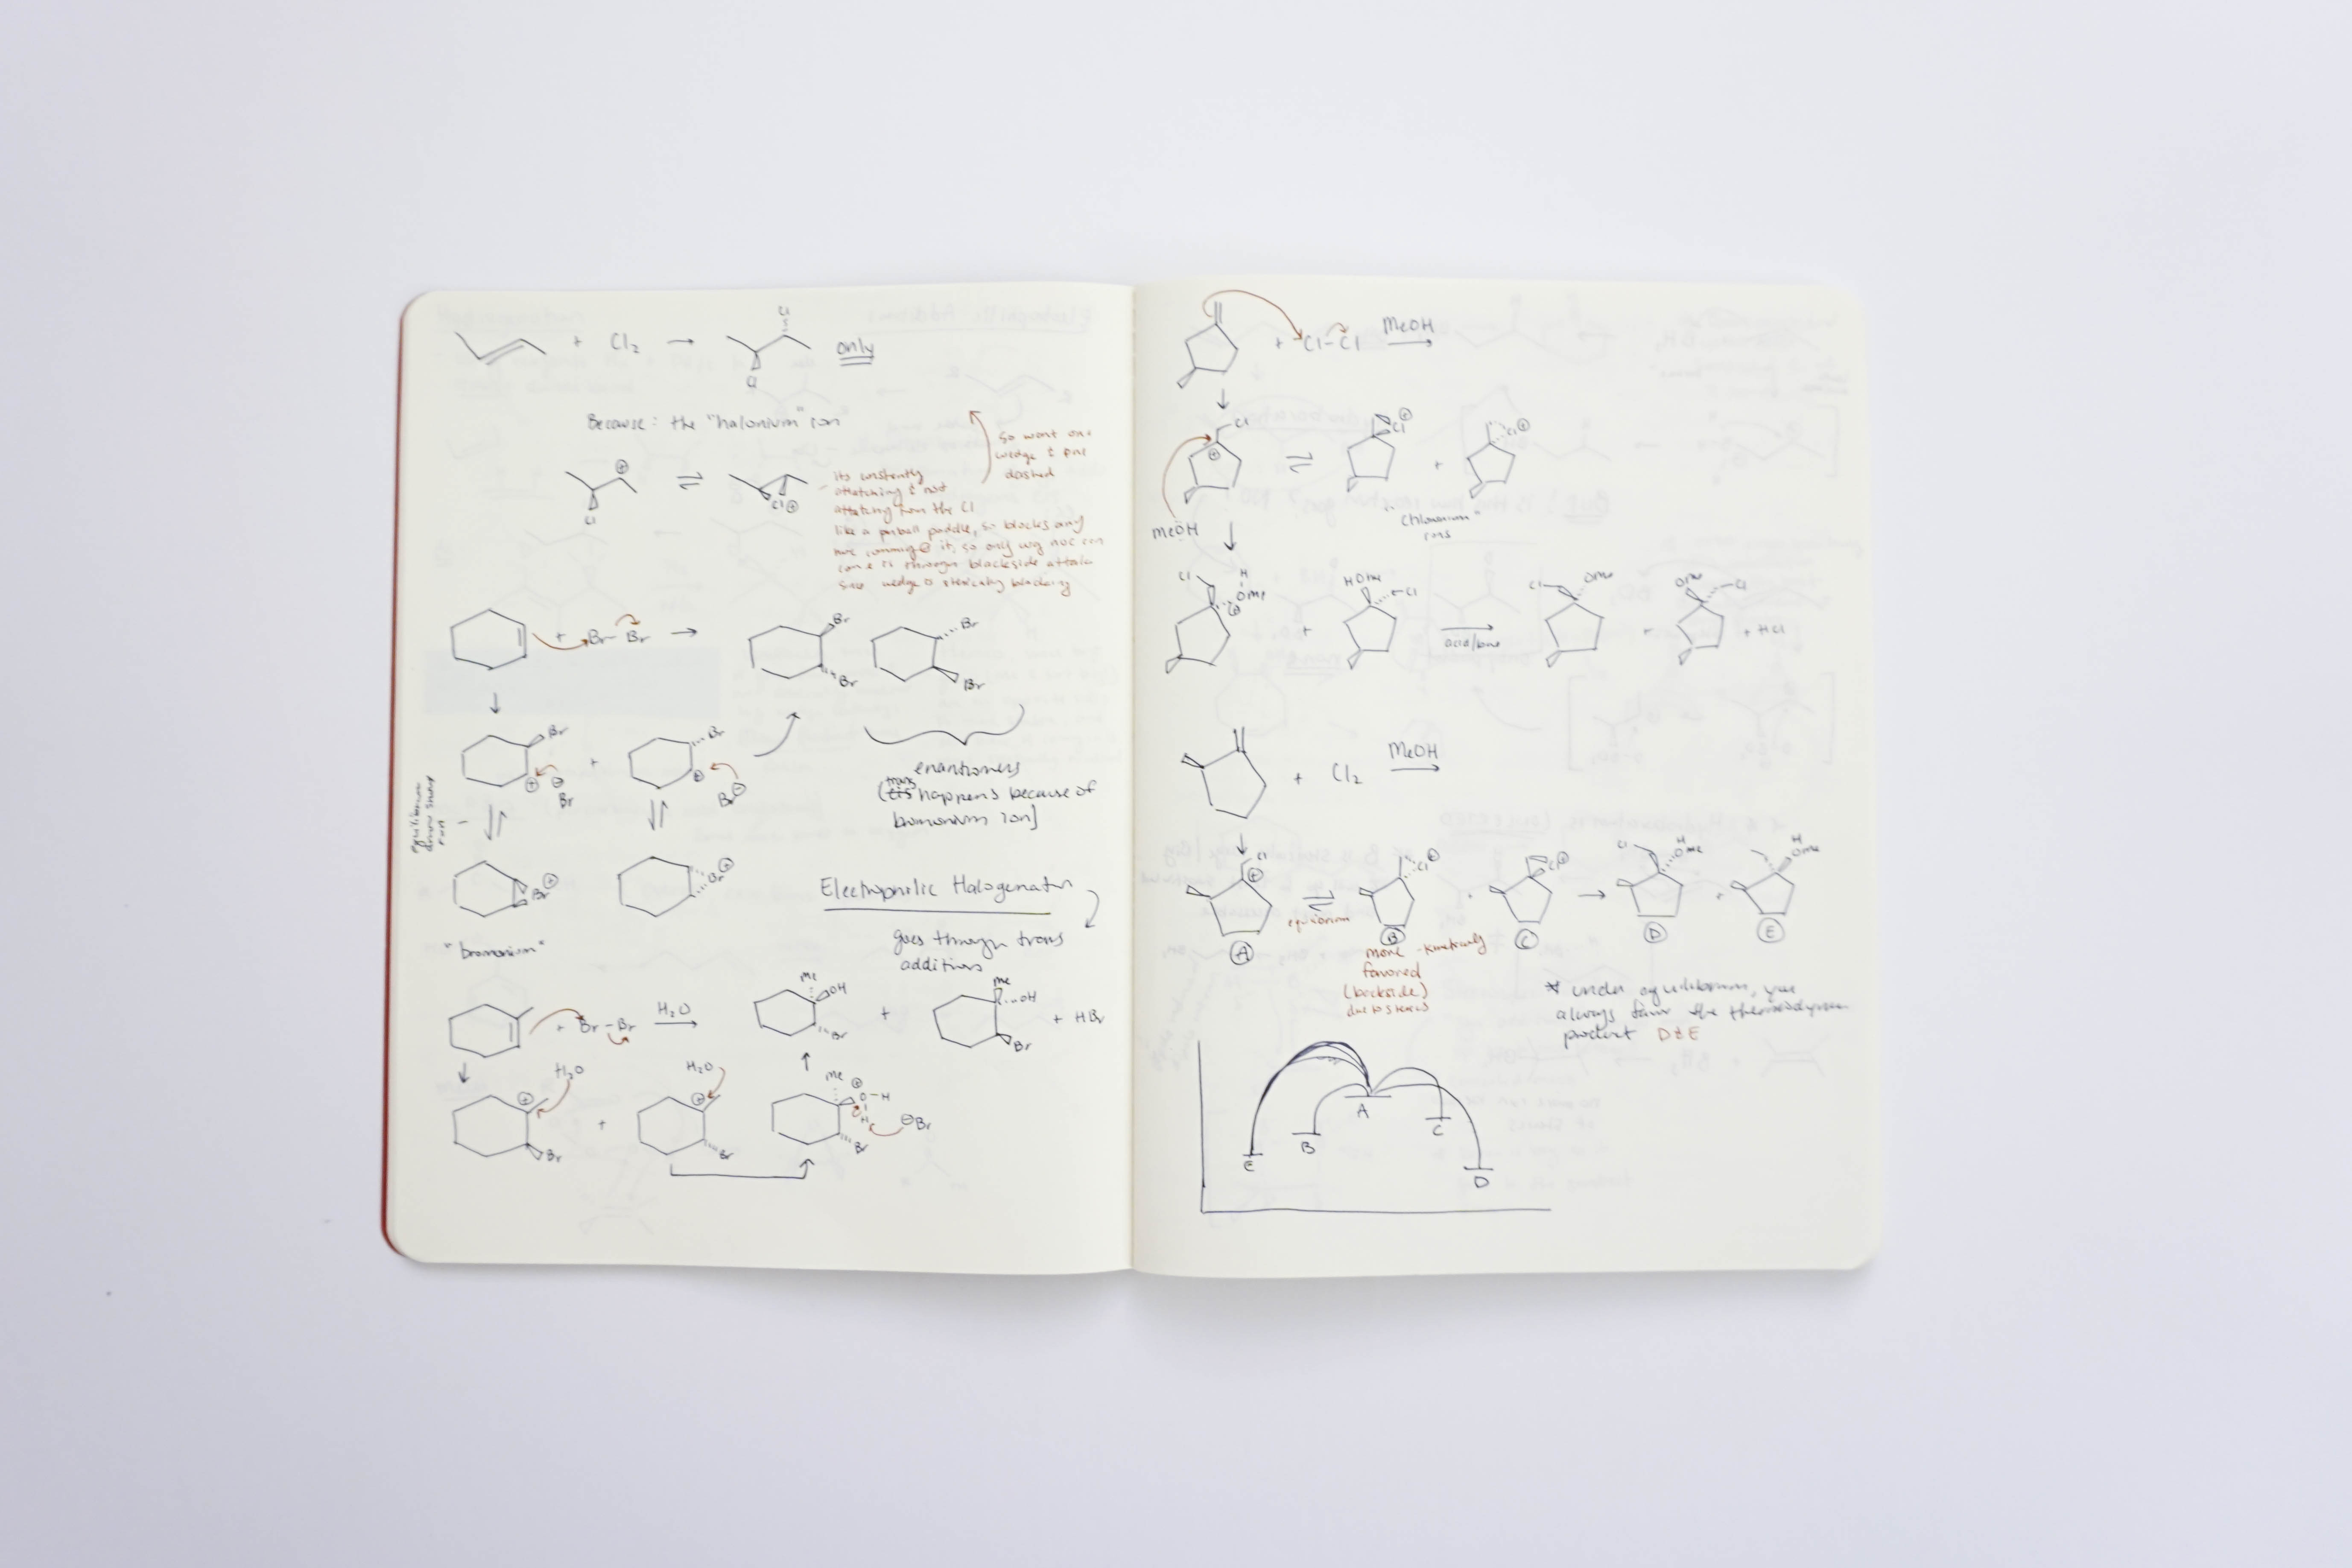 + Cl2 → Cl
Cl
only
Because: the "halonium" ion
⊕
Cl
⇌
Cl⊕
so want one
wedge & one
dashed
its constently
attatching & not
attatching from the Cl
like a pinball paddle, so blocks any
nuc coming @ it, so only way nuc can
come is through blackside attack
since wedge is sterically blocking
+ Br-Br →
Br
Br
Br
Br
↓
Br
⊕
⊖
Br
+
Br
⊕
Br⊖
enantiomers
(trans happens because of
bromonium ion]
equilibrium
arrow
⇌
⇌
Br⊕
Br⊕
"bromonium"
Electrophilic Halogenation
goes through trans
additions
+ Br-Br
H2O
→
Me
OH
Br
+
Me
OH
Br
+ HBr
↓
H2O
⊕
Br
+
H2O
⊕
Br
↑
Me
⊕
O-H
H
Br
⊖Br
+ Cl-Cl
MeOH
→
↓
Cl
⊕
⇌
⊕
Cl
+
Cl⊕
MeOH
"Chloronium"
ions
↓
Cl
H
OMe
⊕
+
HOMe
Cl
acid/base
→
Cl
OMe
+
OMe
Cl
+ HCl
+ Cl2
MeOH
→
↓
Cl
⊕
A
⇌
equilibrium
Cl⊕
B
Cl⊕
C
→
Cl
H
OMe
D
+
H
OMe
E
more kinetically
favored
(backside)
due to sterics
* under equilibrium, you
always favor the thermodynamic
product D & E
A
B
C
E
D